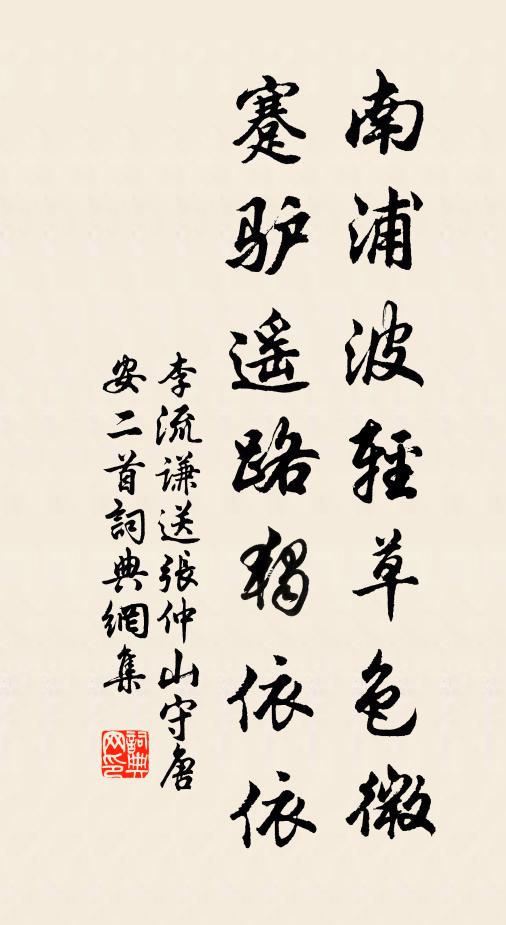 南浦波輕草色微
蹇驴遥路獨依依
李流謙送張仲山守唐
安二首詞典網集
詞典
网印